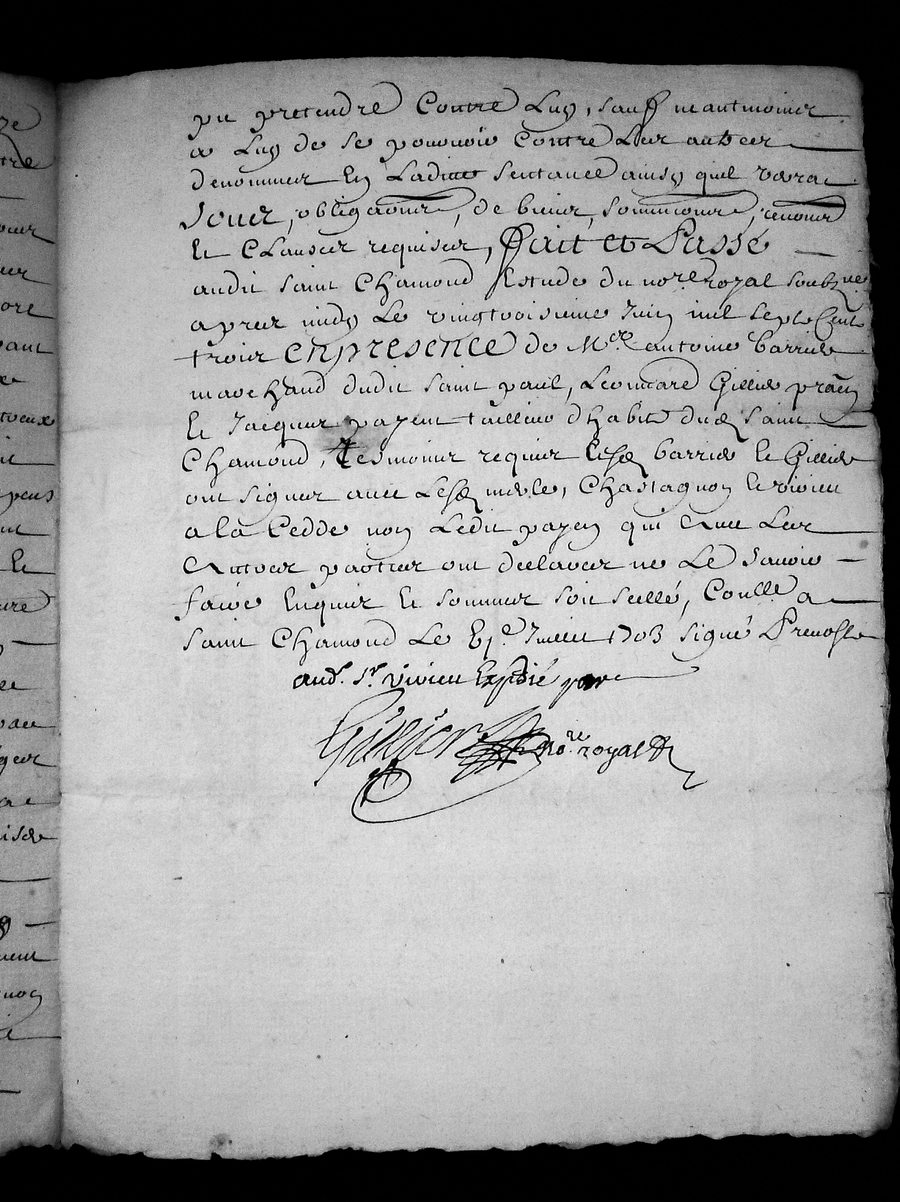 pu pretendre Contre Luy, sauf neantmoins
a Luy de se pouruoir Contre Les autres
denommes En Laditte sentance ainsy quil verra
Obligations, de biens, soumissions, renons
Et Clauses requises, fait et Passé
audit saint Chamond Estude du nore. royal soubzne
apres midy Le vingtroisieme Juin mil sept Cent
trois en presence de Mre antoine barrier
marchand dudit saint paul, Leonnard Gillier
Et Jacques payen tailleur dhabits dud saint
Chamond, tesmoins requis Lesd barrier Et Gillier
ont signes auec Lesd merle, Chastagnon Et vivien
a la Cedde non Ledit payen qui Auec Les
Autres parties ont declares ne Le sauoir
faire Enquis Et sommes soit scellé, Conllé a
saint Chamond Le Juillet 1703 signé Prevost
aud. Sr. vivien Expedié par
nore. royal